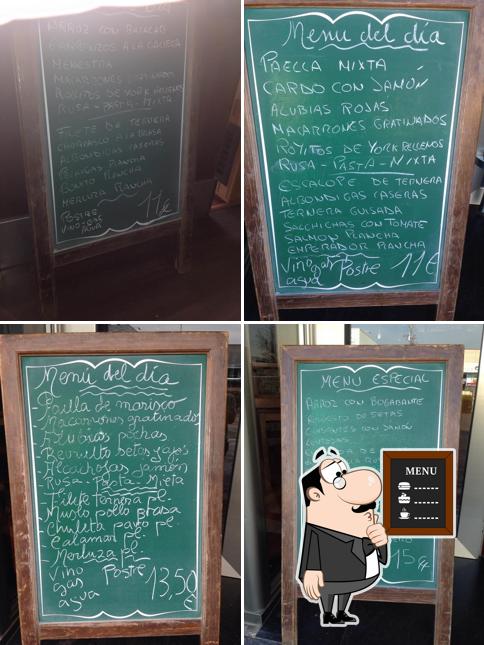 ARROZ CON BACALAO
GARBANZOS A LA GALLEGA
MENESTRA
MACARRONES GRATINADOS
ROLLITOS DE YORK RELLENOS
RUSA - PASTA - MIXTA
FILETE DE TERNERA
CHURRASCO A LA BRASA
ALBONDIGAS CASERAS
PLANCHA
BONITO PLANCHA
MERLUZA PLANCHA
POSTRE
VINO GAS
AGUA
11€
Menu del día
PAELLA MIXTA
CARDO CON JAMÓN
ALUBIAS ROJAS
MACARRONES GRATINADOS
ROYITOS DE YORK RELLENOS
RUSA - PASTA - MIXTA
ESCALOPE DE TERNERA
ALBONDIGAS CASERAS
TERNERA GUISADA
SALCHICHAS CON TOMATE
SALMON PLANCHA
EMPERADOR PLANCHA
Vino gas
agua
Postre
11€
Menú del día
- Paella de marisco
- Macarrones gratinados
- Alubias pochas
- Revuelto setas, ajos
- Alcachofas jamón
- Rusa - Pasta - Mixta
- Filete ternera pl.
- Muslo pollo brasa
- Chuleta pavo pl.
- Calamar pl.
- Merluza pl.
Vino
gas
agua
Postre
13,50
€
MENU ESPECIAL
ARROZ CON BOGABANTE
REVUELTO DE SETAS
GUISANTES CON JAMÓN
MENU
15€